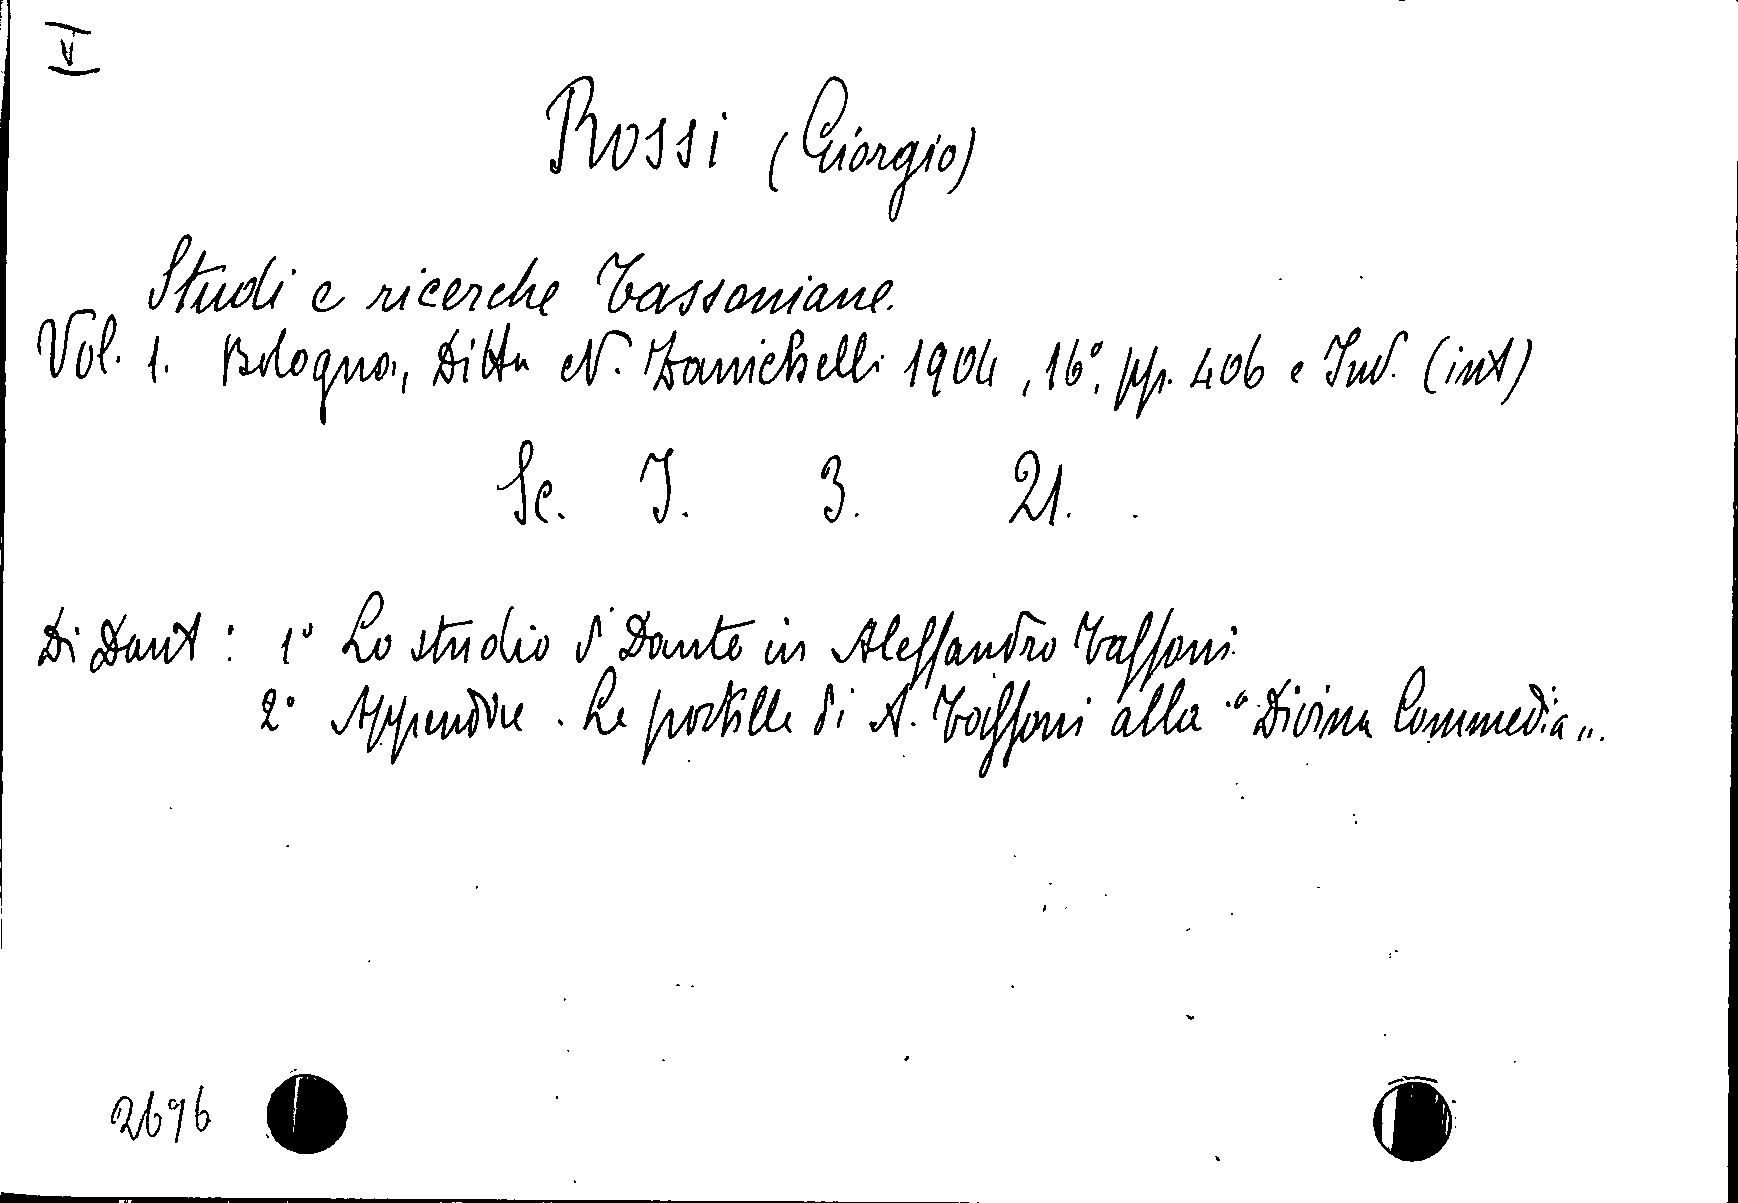 V
Rossi (Giorgio)
Studi e ricerche Tassoniane.
Vol. 1. Bologna, Ditta N. Zanichelli 1904, 16°, pp. 406 e Ind. (int)
Sc. I. 3. 21.
Di Dant: 1° Lo studio di Dante in Alessandro Tassoni.
2° Appendice. Le postille di A. Tassoni alla "Divina Commedia„.
2696